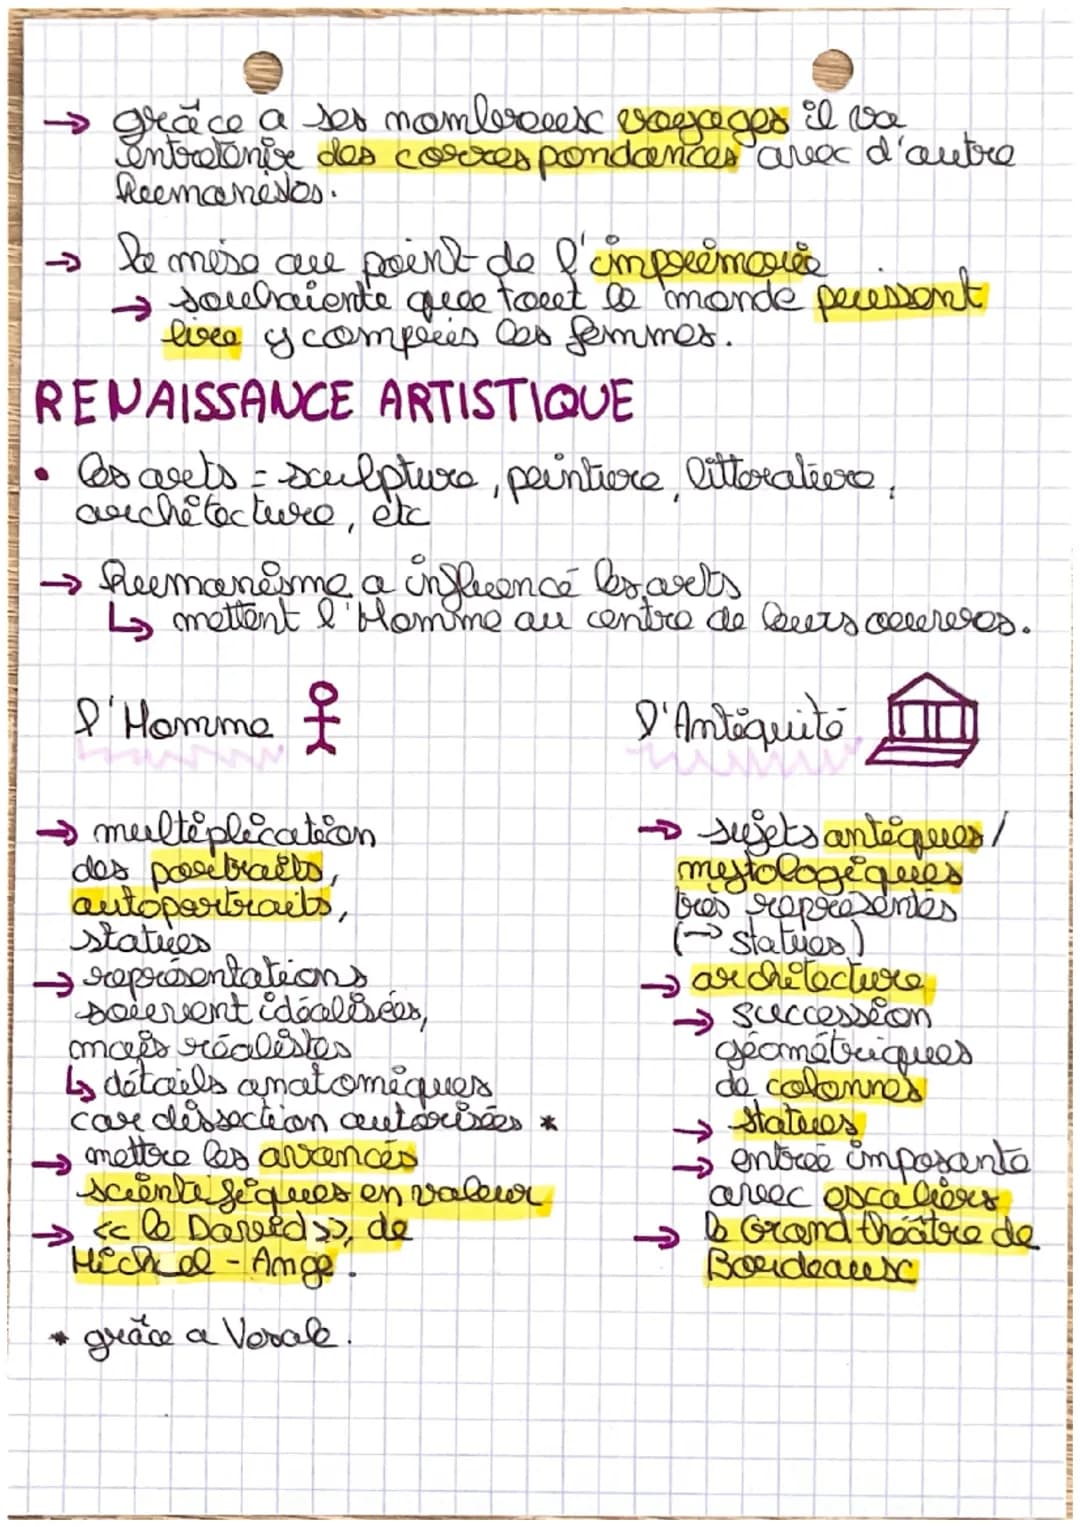 → grâce a ses nombreux voyages il va
entretenir des correspondances avec d'autre
humanistes.
→ la mise au point de l'imprimerie
→ souhaiente que tout le monde puissent
lire y compris les femmes.
RENAISSANCE ARTISTIQUE
• les arts = sculpture, peinture, littérature,
architecture, etc
→ humanisme a influencé les arts
↳ mettent l'Homme au centre de leurs oeuvres.
l'Homme
→ multiplication
des portraits,
autoportraits,
statues
→ représentations
souvent idéalisées,
mais réalistes
↳ détails anatomiques
car dissection autorisées *
→ mettre les avancés
scientifiques en valeur
→ << le David >>, de
Michel-Ange.
* grâce a Vesale.
l'Antiquité
→ sujets antiques /
mytologiques
très représentés
(→ statues)
→ architecture
→ succession
géométriques
de colonnes
→ statues
→ entrée imposante
avec escaliers
→ le Grand théâtre de
Bordeaux